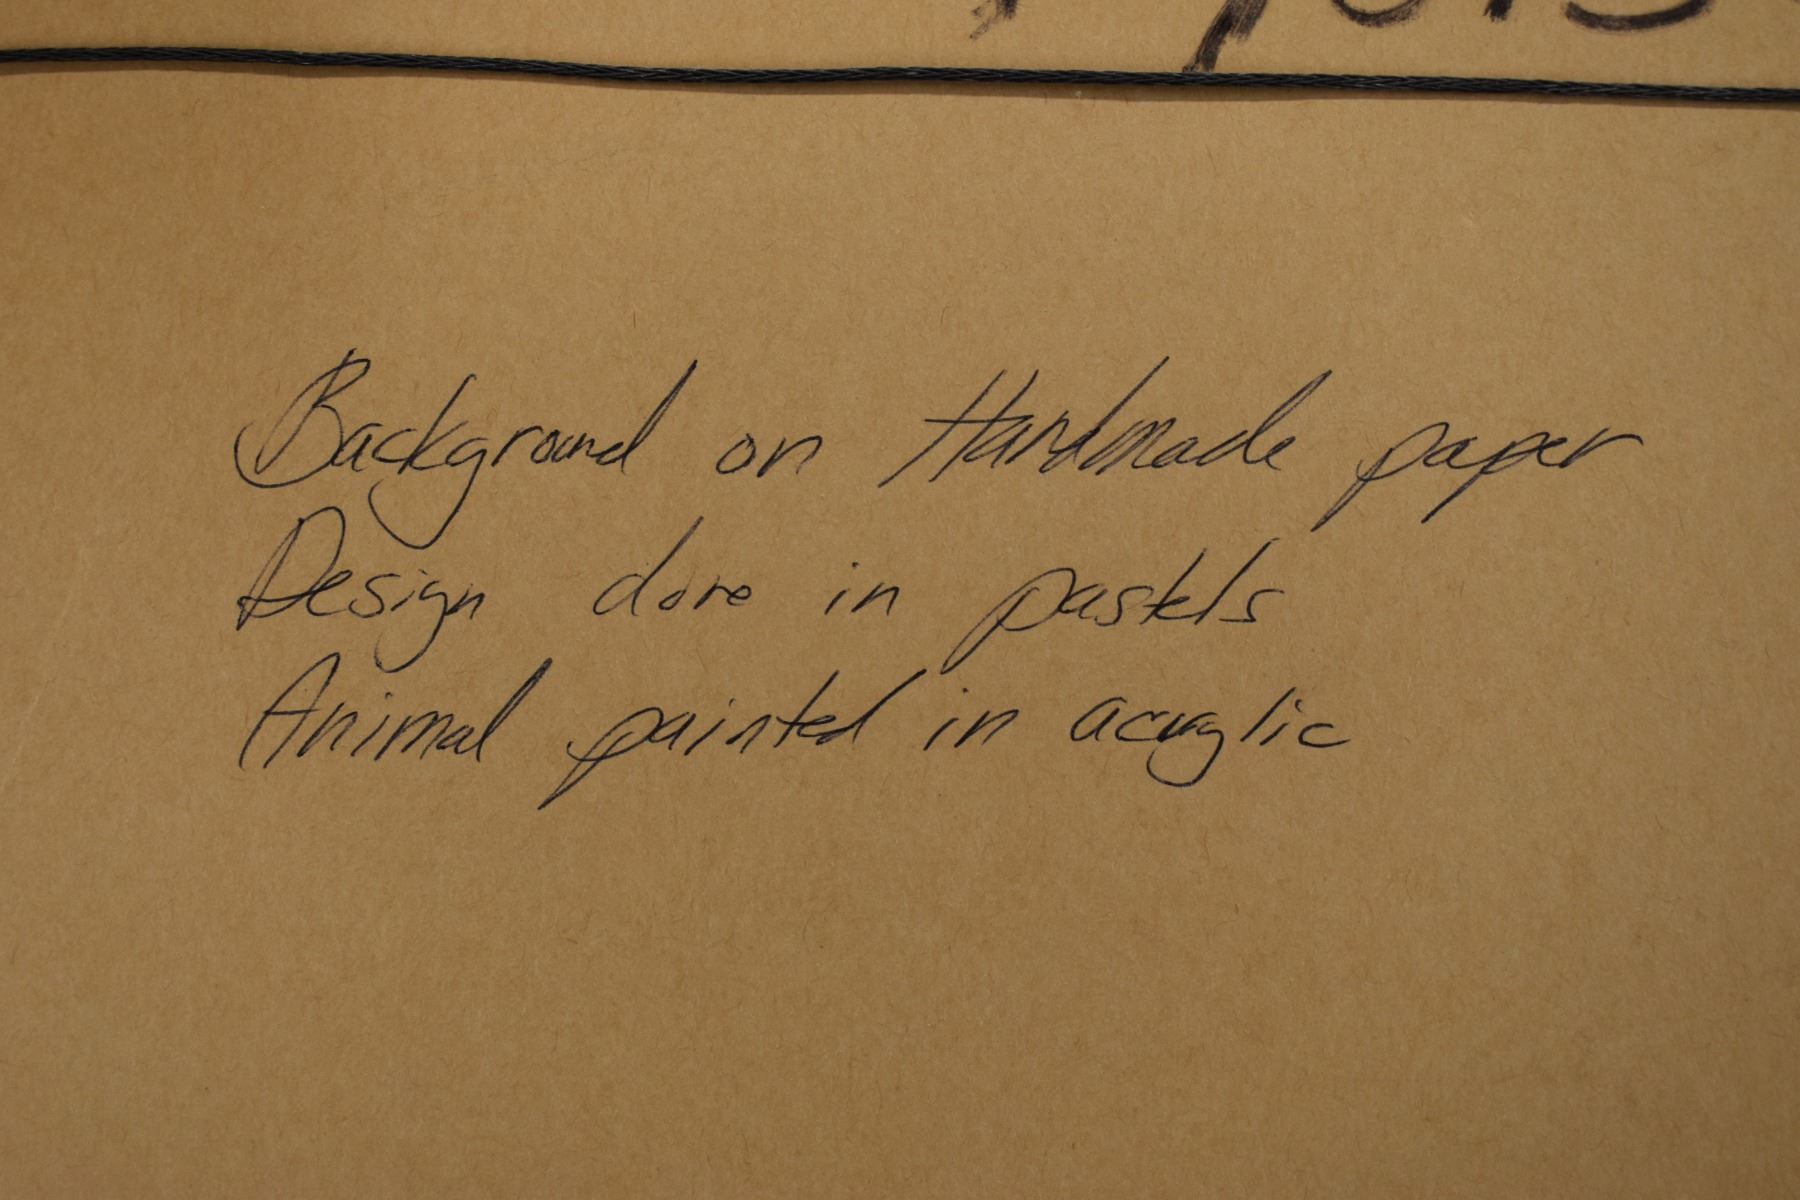 Background on Handmade paper
Design done in pastels
Animal painted in acrylic